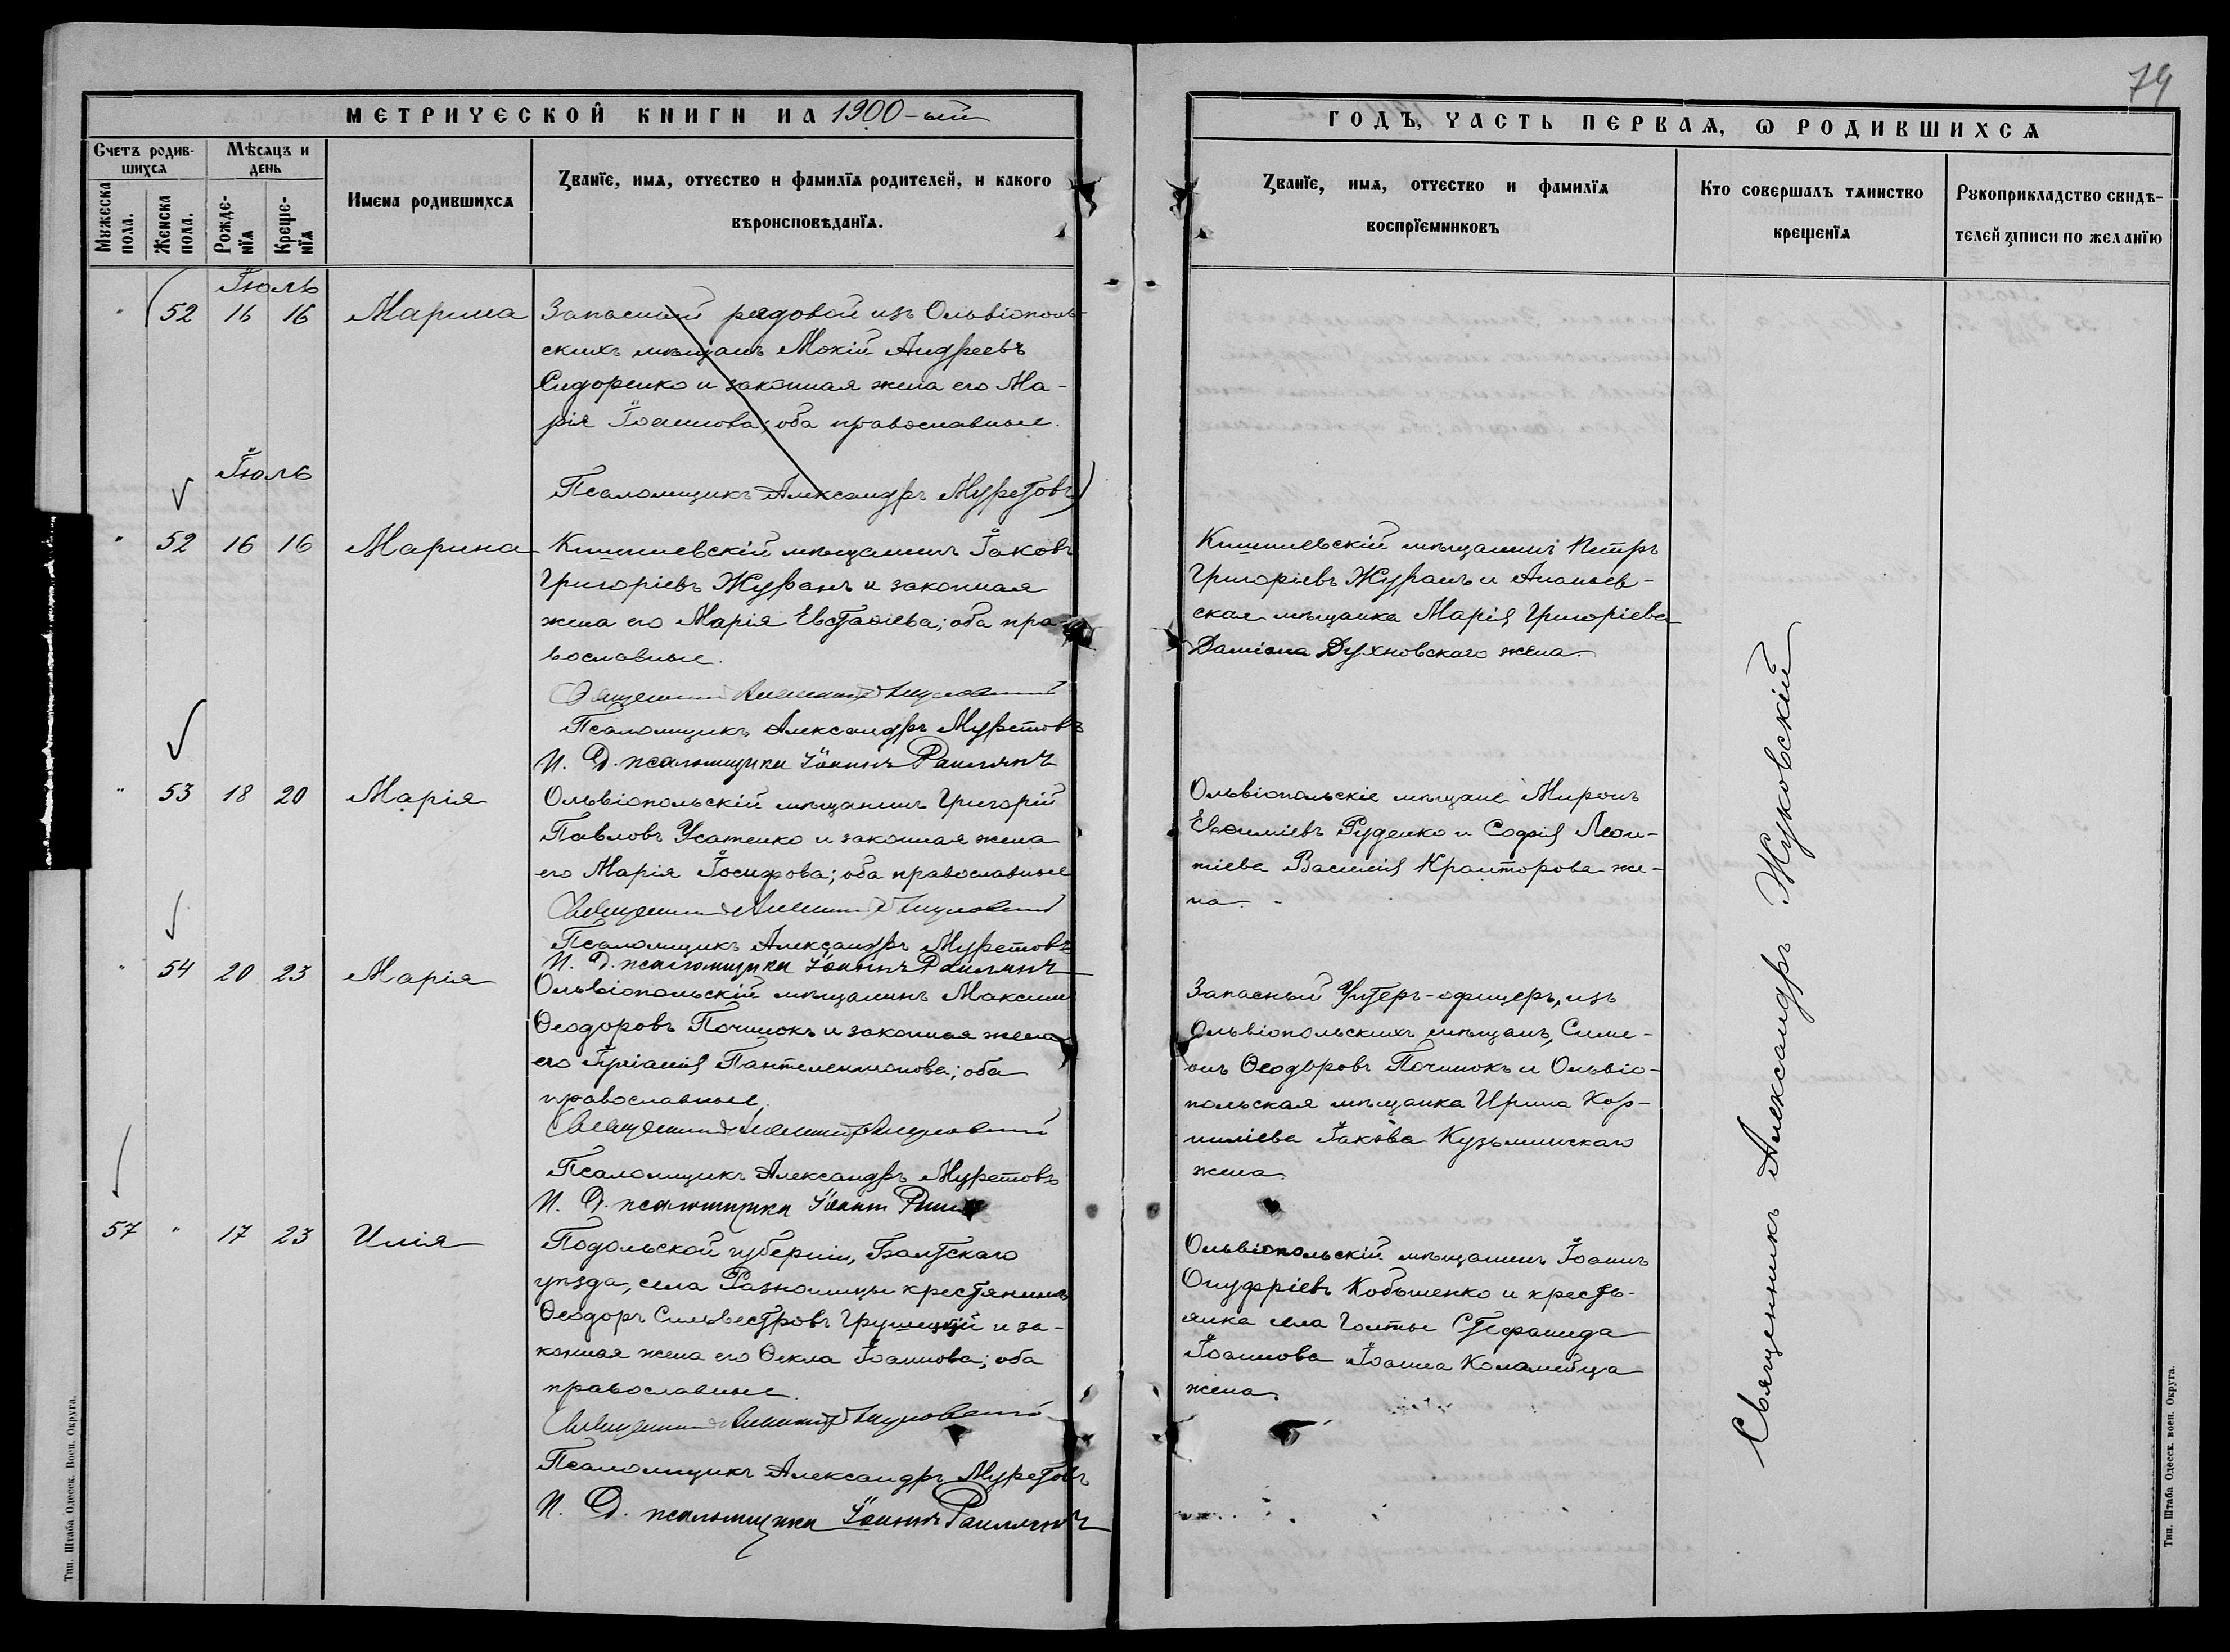 79
МЕТРИЧЕСКОЙ КНИГИ НА 1900-ый
ГОДЪ, ЧАСТЬ ПЕРВАѦ, Ѡ РОДИВШИХСѦ
Счетъ родив-
шихсѧ
Мѣсѧцъ и
день
Мꙋжеска
пола.
Женска
пола.
Рожде-
нїѧ
Креще-
нїѧ
Имена родившихсѧ
Ꙁванїе, имѧ, отчество и фамилїѧ родителей, и какого
вѣроисповѣданїѧ.
Ꙁванїе, имѧ, отчество и фамилїѧ
воспрїемниковъ
Кто совершалъ таинство
крещенїѧ
Рꙋкоприкладство свидѣ-
телей ꙁаписи по желанїю
Іюль
" 52 16 16 Марина Запасный рядовой изъ Ольвіополь-
скихъ мѣщанъ Мокій Андреевъ
Сидоренко и законная жена его Ма-
рія Іоаннова; оба православные.
Псаломщикъ Александръ Муретовъ
Іюль
" 52 16 16 Марина Кишиневскій мѣщанинъ Іаковъ
Григоріевъ Журанъ и законная
жена его Марія Евстаѳіева; оба пра-
вославные.
Священникъ Александръ Жуковскій
Псаломщикъ Александръ Муретовъ
И. Д. псаломщика Іоаннъ
Кишиневскій мѣщанинъ Петръ
Григоріевъ Журанъ и Ананьев-
ская мѣщанка Марія Григоріева
Даміана Духновскаго жена.
" 53 18 20 Марія Ольвіопольскій мѣщанинъ Григорій
Павловъ Усатенко и законная жена
его Марія Іосифова; оба православные
Священникъ Александръ Жуковскій
Псаломщикъ Александръ Муретовъ
И. Д. псаломщика Іоаннъ
Ольвіопольскіе мѣщане Миронъ
Евѳиміевъ Руденко и Софія Леон-
тіева Василія Кранторова же-
на.
" 54 20 23 Марія Ольвіопольскій мѣщанинъ Максимъ
Ѳеодоровъ Починокъ и законная жена
его Іуліанія Пантелеимонова; оба
православные.
Священникъ Александръ Жуковскій
Псаломщикъ Александръ Муретовъ
И. Д. псаломщика Іоаннъ
Запасный Унтеръ-офицеръ, изъ
Ольвіопольскихъ мѣщанъ, Симе-
онъ Ѳеодоровъ Починокъ и Ольвіо-
польская мѣщанка Ирина Кор-
ниліева Іакова Кузьминскаго
жена.
57 " 17 23 Илія Подольской губерніи, Балтскаго
уѣзда, села крестянинъ
Ѳеодоръ Сильвестровъ Грушецкій и за-
конная жена его Ѳекла Іоаннова; оба
православные.
Священникъ Александръ Жуковскій
Псаломщикъ Александръ Муретовъ
И. Д. псаломщика Іоаннъ
Ольвіопольскій мѣщанинъ Іоаннъ
Онуфріевъ Кобыленко и кресть-
янка села Голты Стефанида
Іоаннова Іоанна Коламейца
жена.
Священникъ Александръ Жуковскій
Тип. Штаба Одесск. Воен. Округа.
Тип. Штаба Одесск. воен. Округа.